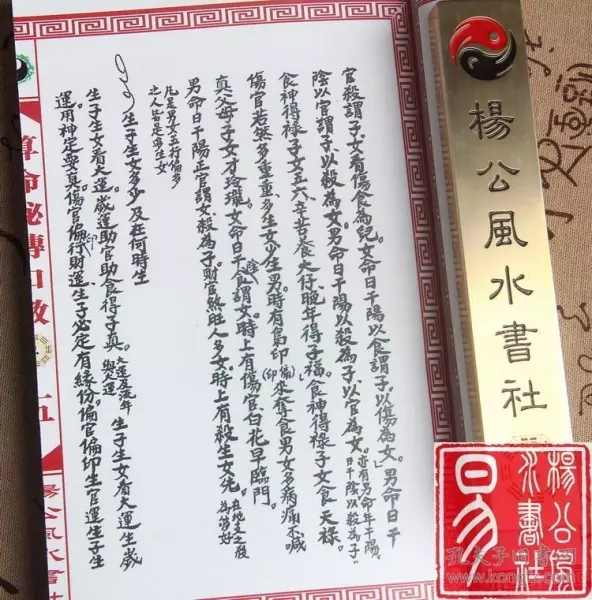 官殺謂子女看傷食為兒女命日干陽以食謂子以傷為女。男命日干
陰以官謂子以殺為女。男命日干陽以殺為子以官為女。
食神得祿子女五六、辛苦養大仔晚年得子福。食神得祿子女食天祿。
傷官若然多重重、多生女少生男時有梟印來奪食男女多病痛不喊
真父母子女才玲瓏。女命日干陰食謂女。時上有傷官白花早臨門。
男命日干陽正官謂女殺為子財官煞旺人多女時上有殺生女先。
凡是男女五行偏多
之人皆是多生女
生子生女多少及在何時生
生子生女看大運。歲運助官助食得子真。大運及流年 生子生女看大運生歲
運用神定要真傷官偏印行財運生子必定有緣份。偏官偏印生官運生子生
算命秘傳口救
五
楊公風水書社
楊公風水書社
楊公風
水書社
易
孔夫子旧书网